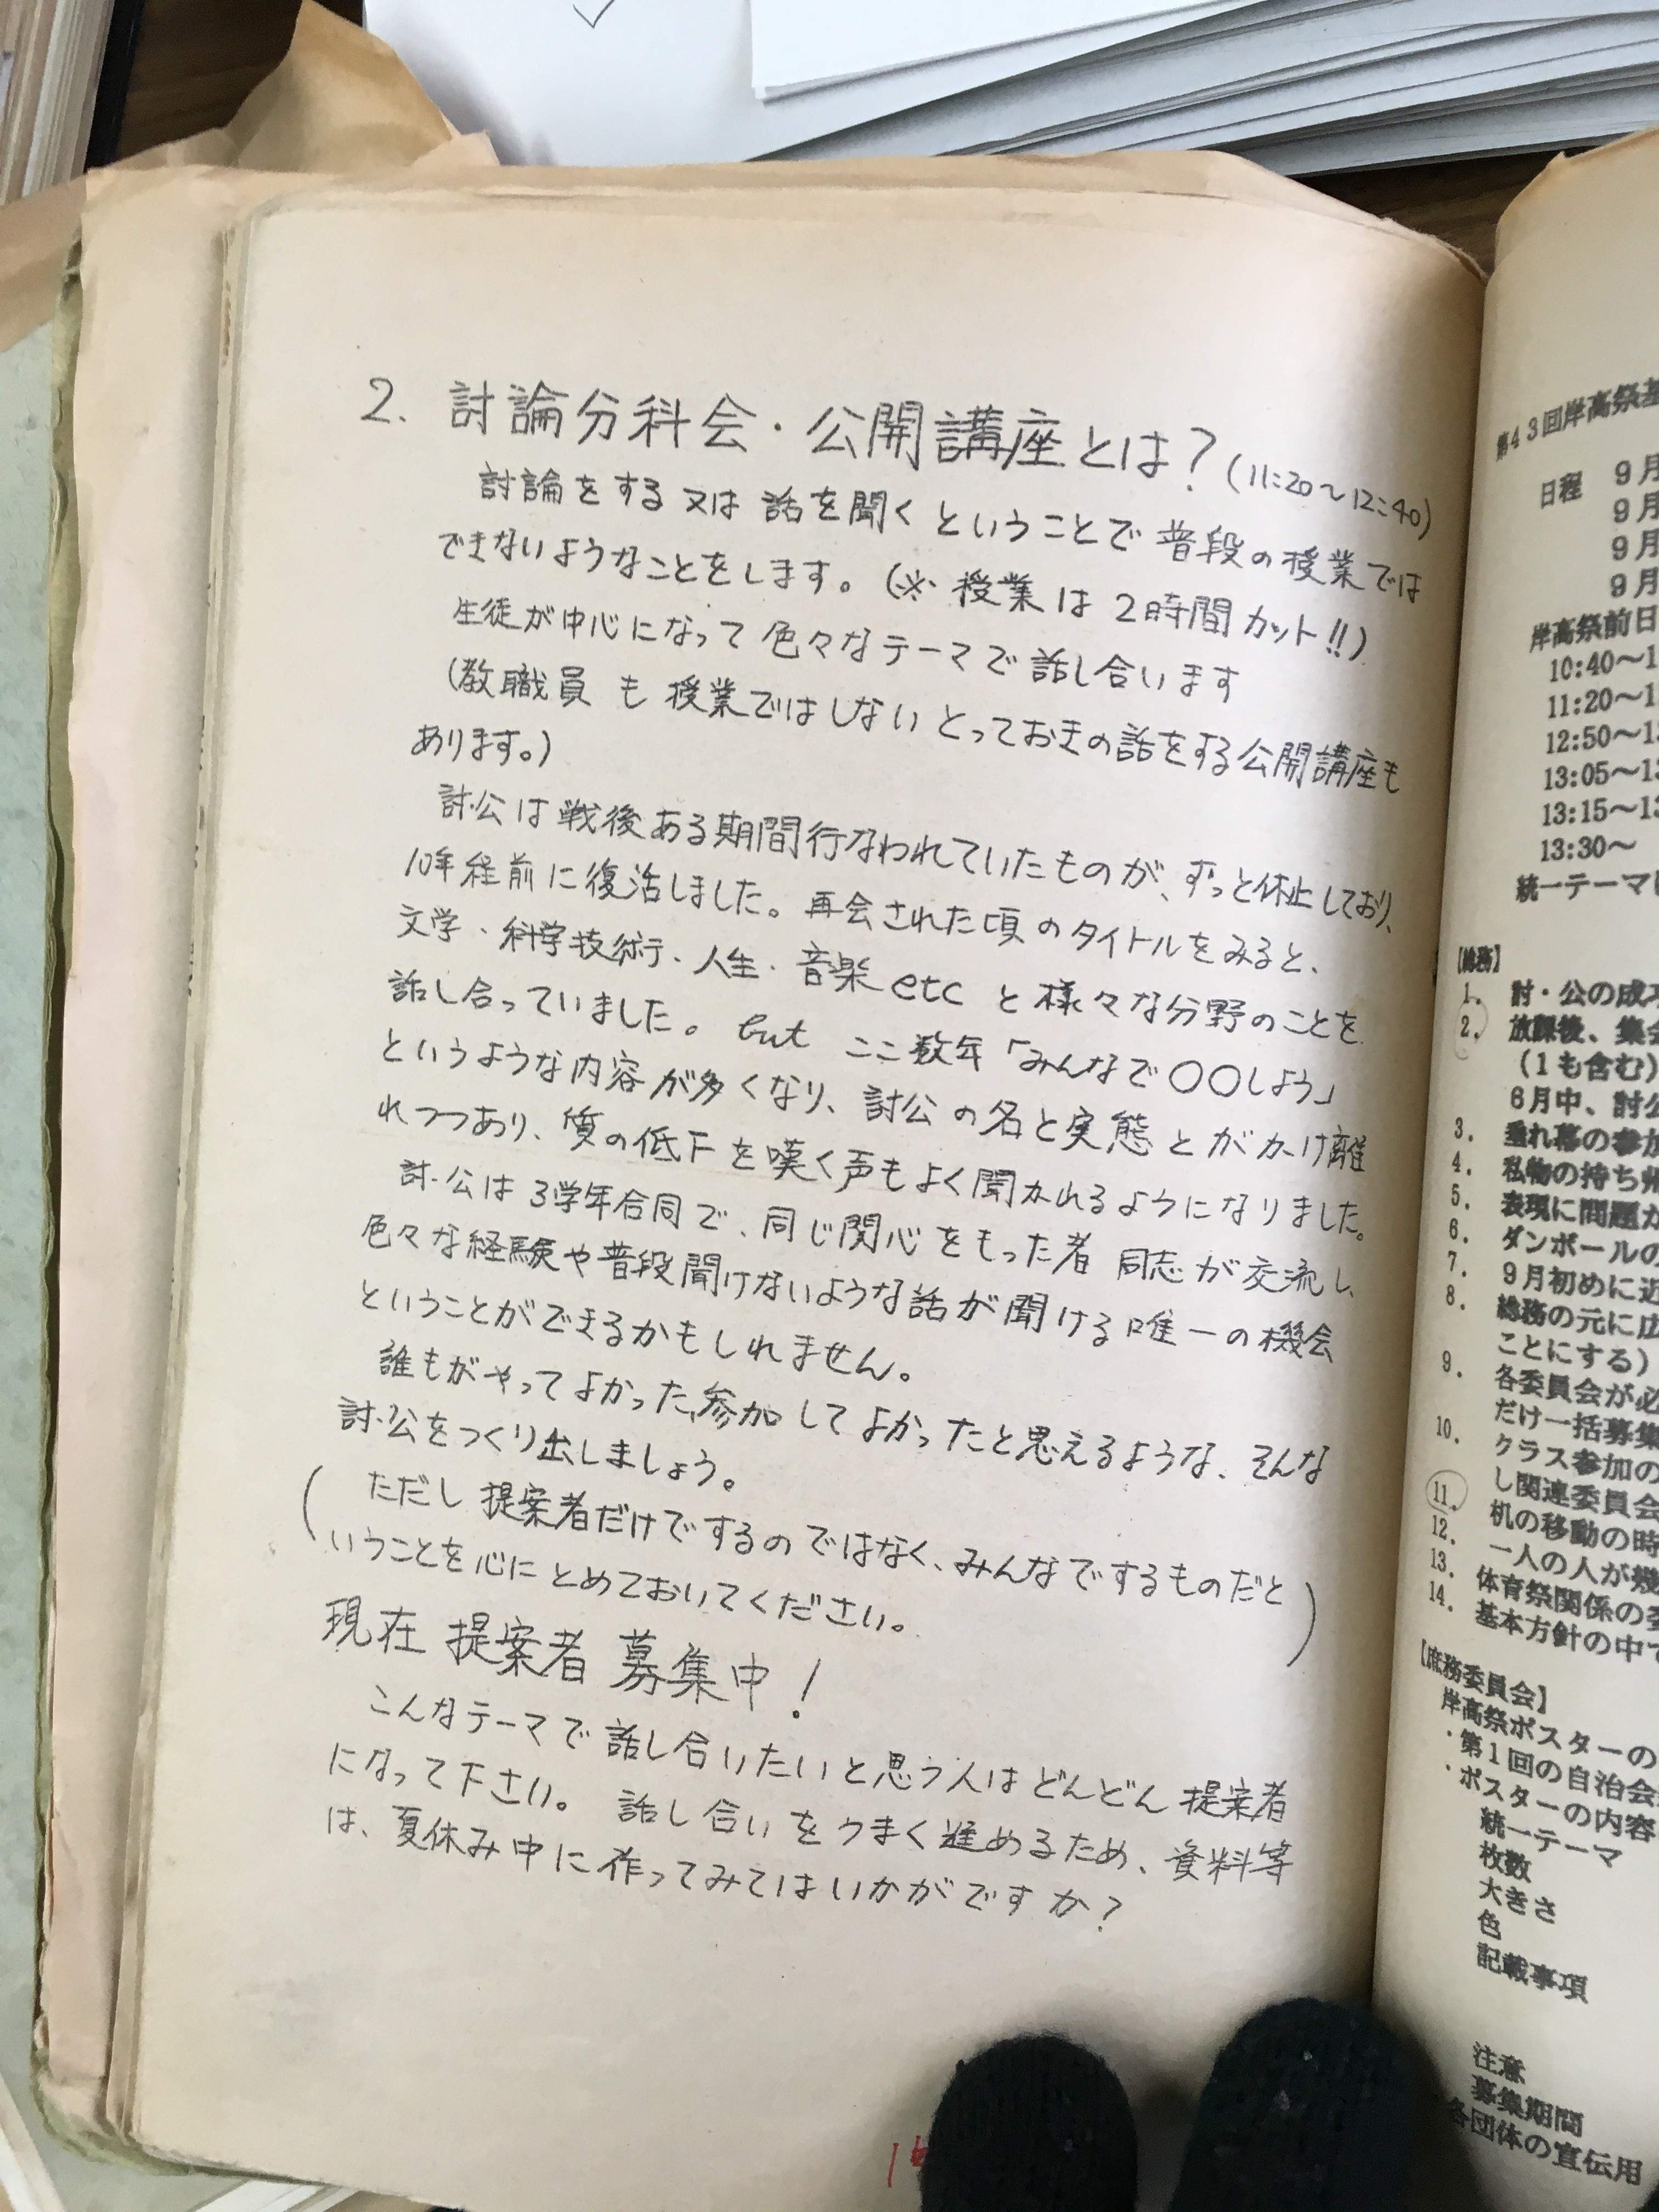 2. 討論分科会・公開講座とは？(11:20〜12:40)
討論をする又は話を聞くということで普段の授業では
できないようなことをします。(※授業は2時間カット!!)
生徒が中心になって色々なテーマで話し合います
(教職員も授業ではしないとっておきの話をする公開講座も
あります。)
討・公は戦後ある期間行なわれていたものが、ずっと休止しており、
10年程前に復活しました。再会された頃のタイトルをみると、
文学・科学技術・人生・音楽etcと様々な分野のことを
話し合っていました。butここ数年「みんなで〇〇しよう」
というような内容が多くなり、討公の名と実態とがかけ離
れつつあり、質の低下を嘆く声もよく聞かれるようになりました。
討・公は3学年合同で、同じ関心をもった者同志が交流し、
色々な経験や普段聞けないような話が聞ける唯一の機会
ということができるかもしれません。
誰もがやってよかった、参加してよかったと思えるような、そんな
討・公をつくり出しましょう。
(ただし提案者だけでするのではなく、みんなでするものだと
いうことを心にとめておいてください。)
現在提案者募集中！
こんなテーマで話し合いたいと思う人はどんどん提案者
になって下さい。話し合いをうまく進めるため、資料等
は、夏休み中に作ってみてはいかがですか？
第43回岸高祭基
日程 9月
9月
9月
9月
岸高祭前日
10:40〜1
11:20〜1
12:50〜1
13:05〜1
13:15〜1
13:30〜
統一テーマ
【総務】
1. 討・公の成功
2. 放課後、集会
(1も含む)
6月中、討公
3. 垂れ幕の参加
4. 私物の持ち
5. 表現に問題が
6. ダンボールの
7. 9月初めに近
8. 総務の元に広
ことにする)
9. 各委員会が必
だけ一括募集
10. クラス参加の
し関連委員会
11. 机の移動の時
12. 一人の人が幾
13. 体育祭関係の委
14. 基本方針の中で
【庶務委員会】
岸高祭ポスターの
・第1回の自治会
・ポスターの内容
統一テーマ
枚数
大きさ
色
記載事項
注意
募集期間
各団体の宣伝用